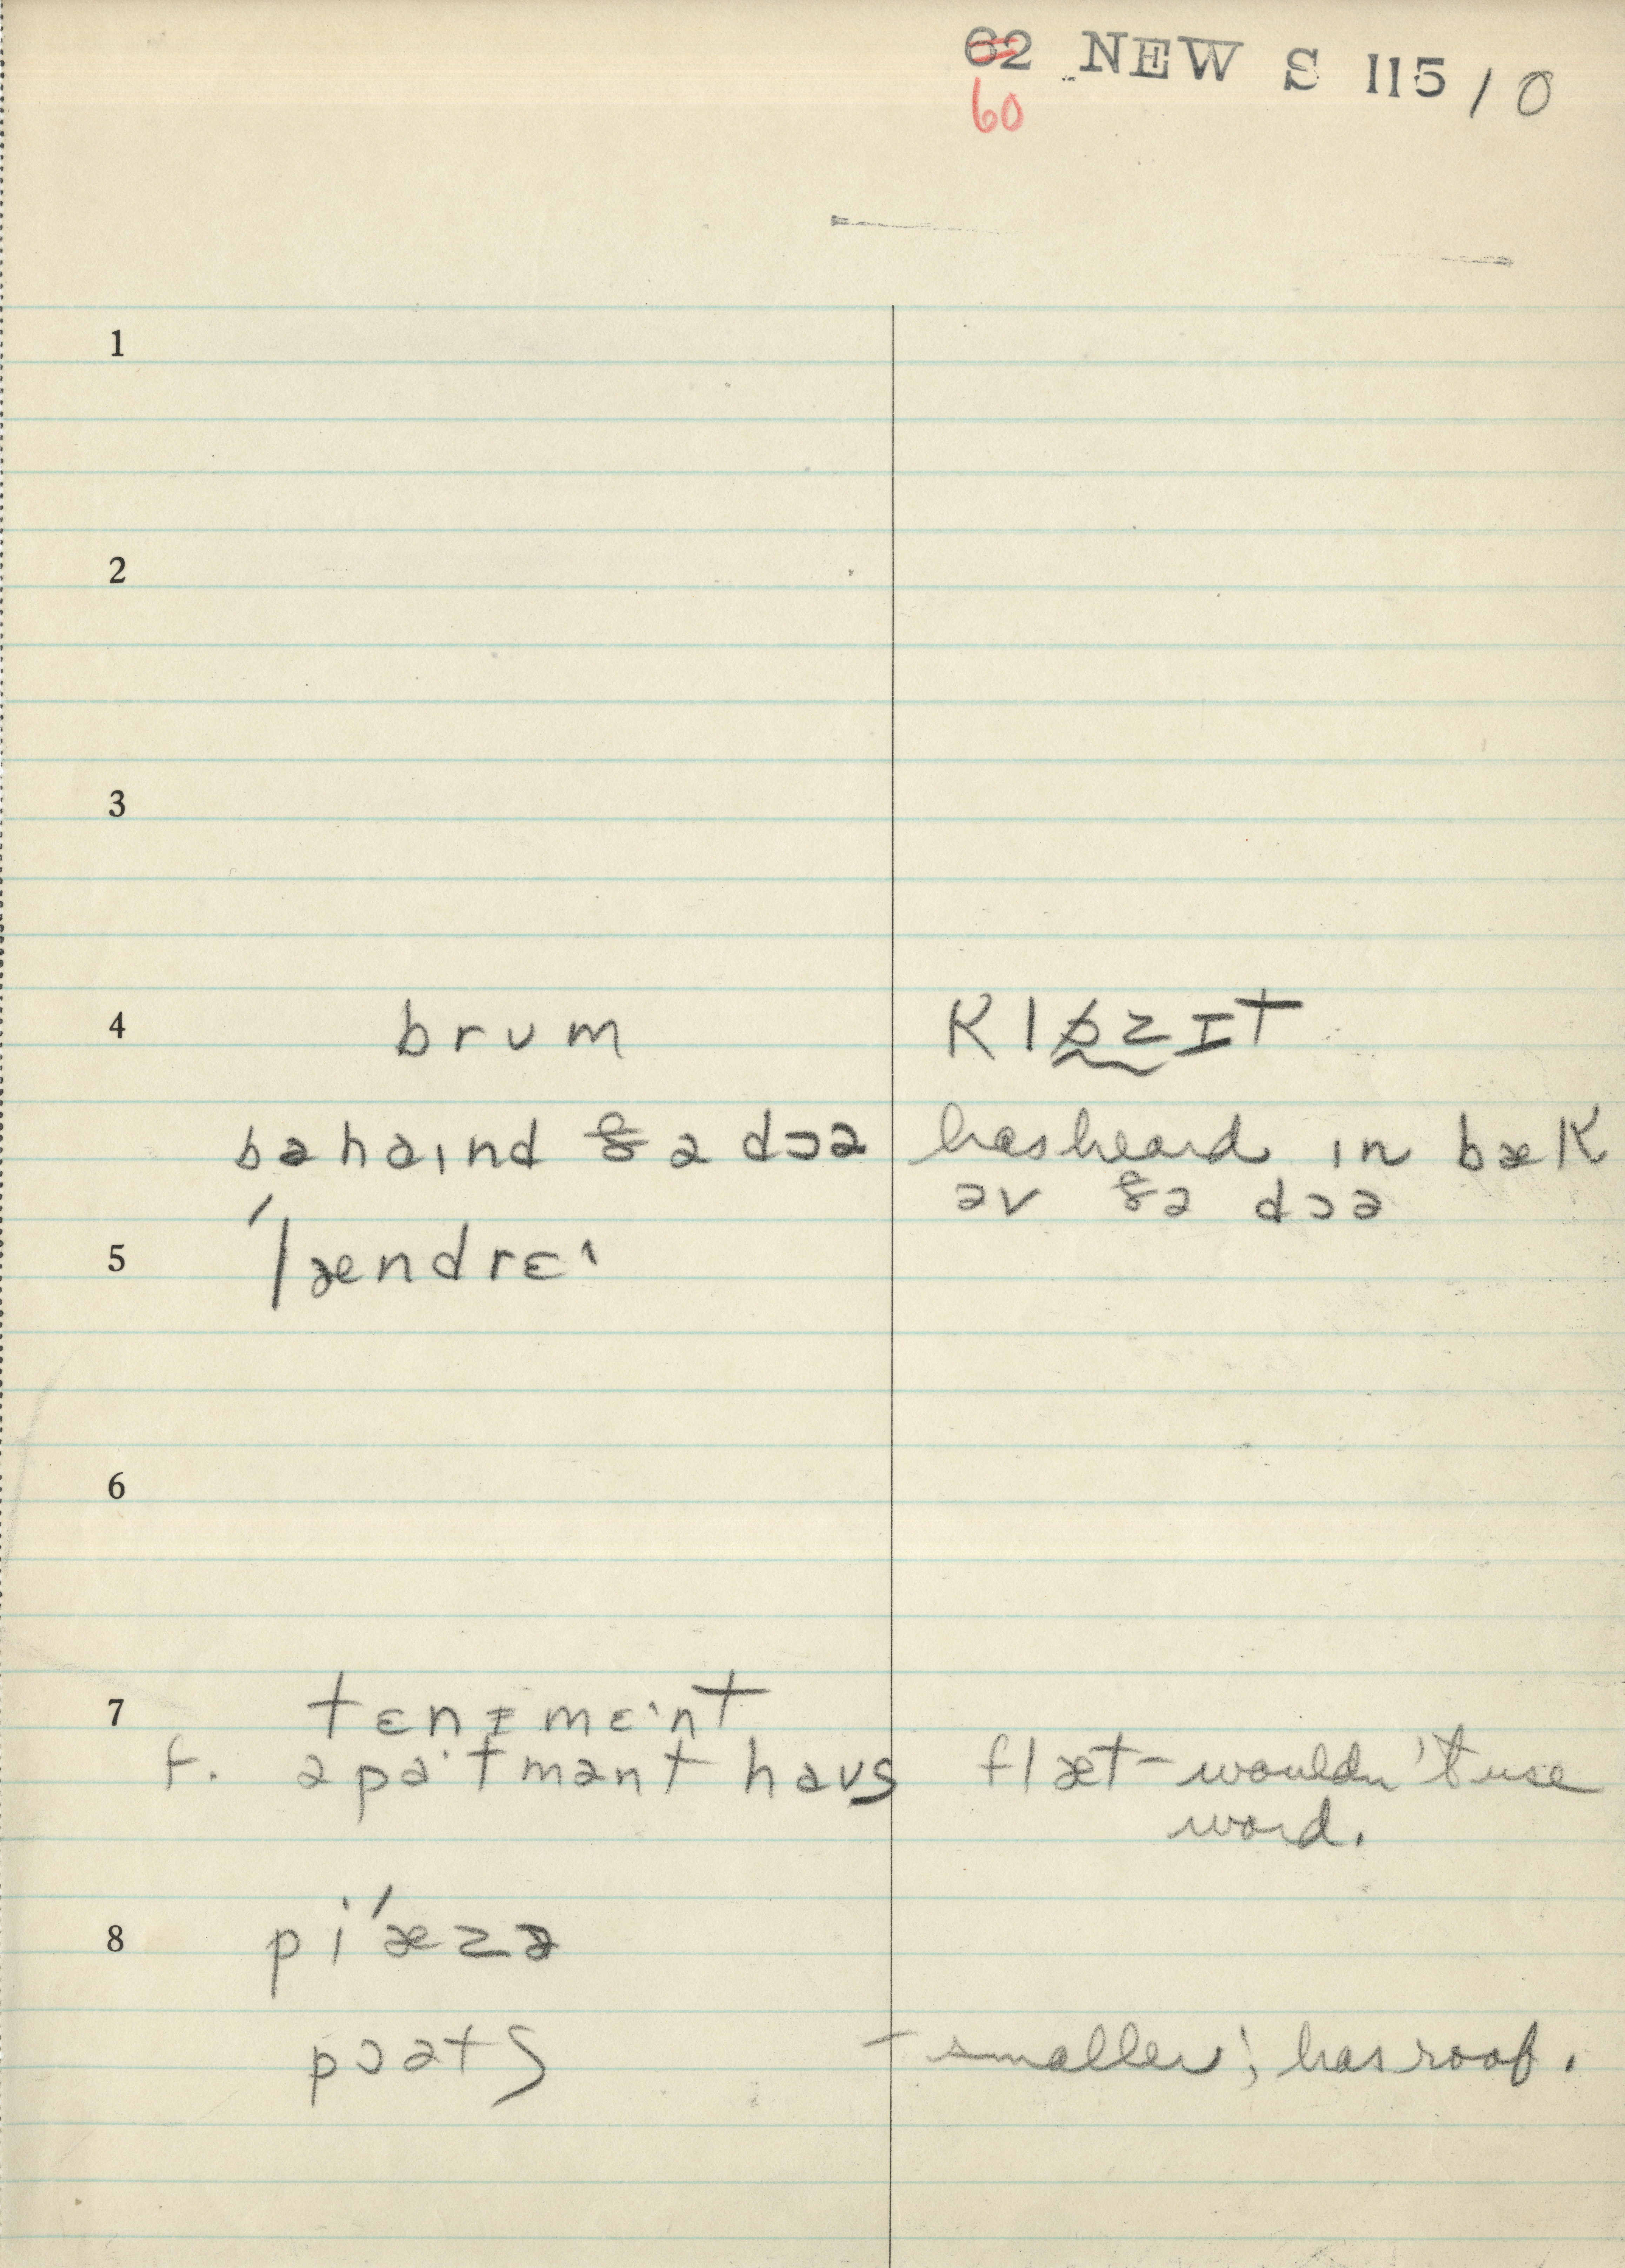 62 NEW S 115 / 0
60
1
2
3
4 brʊm klɒzɪt
bəhaɪnd ðə dɔə has heard ɪn bæk
əv ðə dɔə
5 ˈlændrɛˑ
6
7 tɛnɪmɛˑnt
f. əpaˑtmənt haʊs flæt – wouldn't use
word.
8 piˈæzə
pɔətʃ – smaller; has roof.